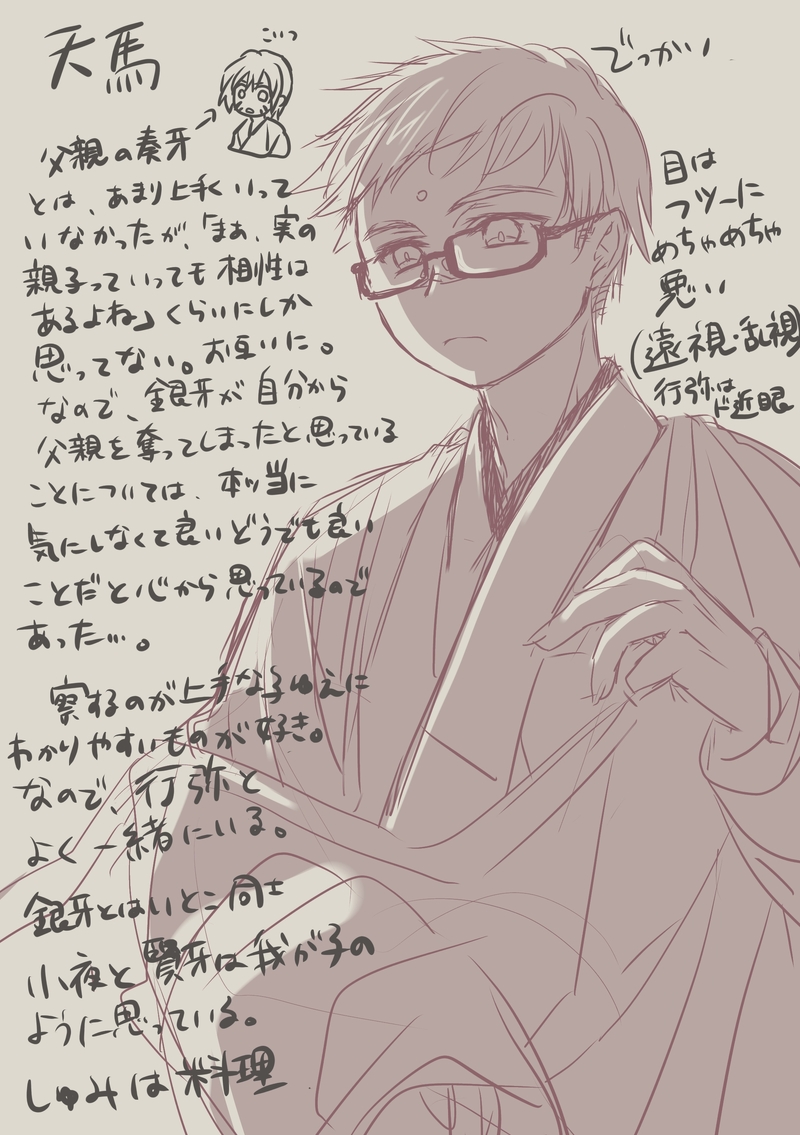 天馬
こいつ
父親の奏牙
とは、あまり上手くいって
いなかったが、「まぁ、実の
親子っていっても相性は
あるよね」くらいにしか
思ってない。お互いに。
なので、銀牙が自分から
父親を奪ってしまったと思っている
ことについては、本ッ当に
気にしなくて良いどうでも良い
ことだと心から思っているので
あった…。
察するのが上手な子ゆえに
わかりやすいものが好き。
なので、行弥と
よく一緒にいる。
銀牙とはいとこ同士
小夜と賢牙は我が子の
ように思っている。
しゅみは料理
でっかい
目は
フツーに
めちゃめちゃ
悪い
(遠視・乱視)
行弥は
ド近眼